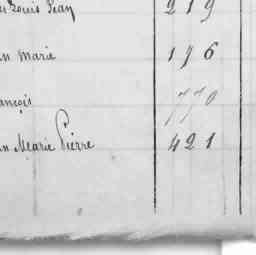 es Louis Jean 219
an Marie 176
ançois 770
an Marie Pierre 421